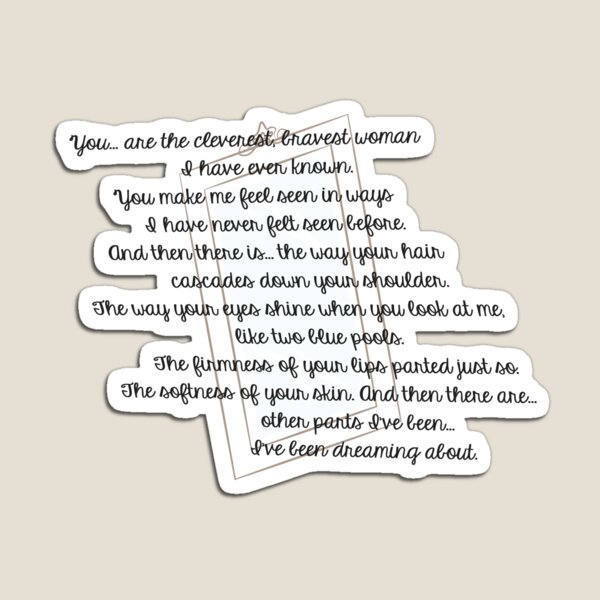 You... are the cleverest, bravest woman
I have ever known.
You make me feel seen in ways
I have never felt seen before.
And then there is... the way your hair
cascades down your shoulder.
The way your eyes shine when you look at me,
like two blue pools.
The firmness of your lips parted just so.
The softness of your skin. And then there are...
other parts I've been...
I've been dreaming about.